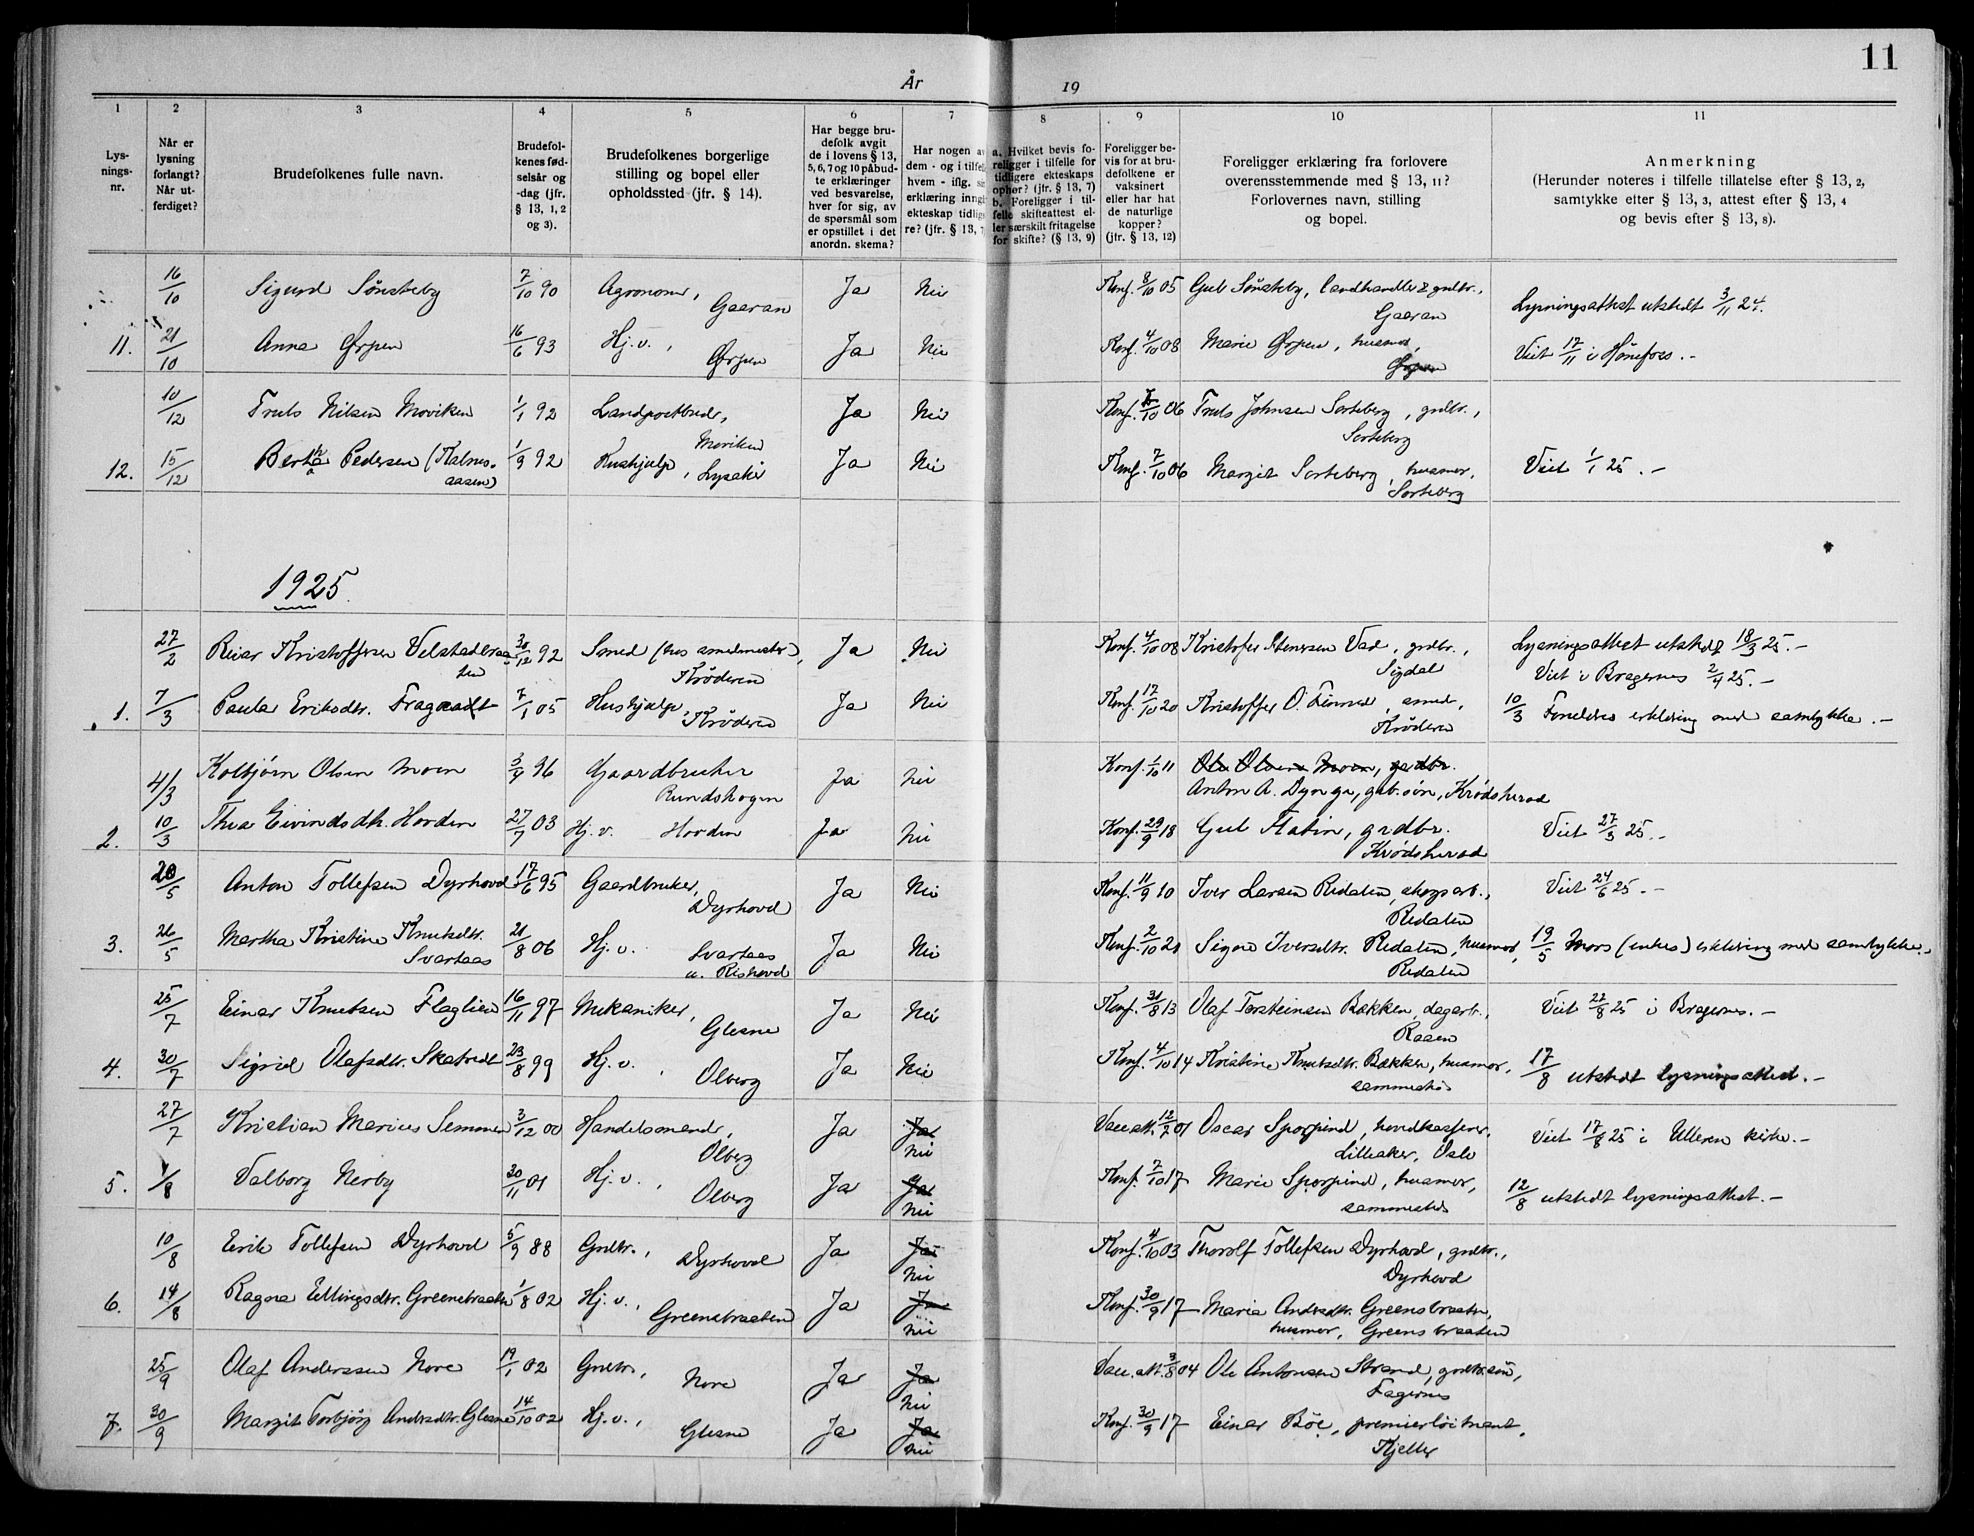 11
År 19
1 2 3 4 5 6 7 8 9 10 11
Lys-
nings-
nr.
Når er
lysning
forlangt?
Når ut-
ferdiget?
Brudefolkenes fulle navn.
Brudefol-
kenes fød-
selsår og
-dag (jfr.
§ 13, 1, 2
og 3).
Brudefolkenes borgerlige
stilling og bopel eller
opholdssted (jfr. § 14).
Har begge bru-
defolk avgit
de i lovens § 13,
5, 6, 7 og 10 påbud-
te erklæringer
ved besvarelse,
hver for sig, av
de spørsmål som
er opstillet i det
anordn. skema?
Har nogen av
dem - og i tilfelle
hvem - iflg. sin
erklæring inngått
ekteskap tidlige-
re? (jfr. § 13, 7
a. Hvilket bevis fo-
religger i tilfelle for
tidligere ekteskaps
ophør? (jfr. § 13, 7)
b. Foreligger i til-
felle skifteattest el-
ler særskilt fritagelse
for skifte? (§ 13, 9)
Foreligger be-
vis for at bru-
defolkene er
vaksinert
eller har hat
de naturlige
kopper?
(jfr. § 13, 12)
Foreligger erklæring fra forlovere
overensstemmende med § 13, 11?
Forlovernes navn, stilling
og bopel.
Anmerkning
(Herunder noteres i tilfelle tillatelse efter § 13, 2,
samtykke efter § 13, 3, attest efter § 13, 4
og bevis efter § 13, 8).
16/10 Sigurd Sönsteby 7/10 90 Agronom, Gaaran Ja Nei Konf. 8/10 05 Gulb Sönsteby, landhandler & grdbr., Gaaran Lysningsattest utstedt 3/11 24.
11. 21/10 Anna Ørpen 16/6 93 Hj. v., Ørpen Ja Nei Konf. 4/10 08 Marie Ørpen, husmor, Ørpen Viet 17/11 i Hönefos. -
10/12 Truls Nilsen Moviken 1/1 92 Landpostbud, Moviken Ja Nei Konf. 06 Truls Johnsen Sorteberg, grdbr., Sorteberg
12. 15/12 Bertha Pedersen (Kalnes-
aasen) 1/9 92 Hushjelp, Lysaker Ja Nei Konf. 7/10 06 Margit Sorteberg, husmor, Sorteberg Viet 1/1 25. -
1925
27/2 Reiar Kristoffersen Velstadbraa-
ten 30/12 92 Smed (hos smedmester), Krøderen Ja Nei Konf. 4/10 08 Kristofer Stensen Vad, grdbr., Sigdal Lysningsattest utstedt 18/3 25. -
Viet i Bragernes 2/4 25. -
1. 7/3 Paula Eriksdtr. Fragaadt 7/1 05 Hushjelp, Krøderen Ja Nei Konf. 17/10 20 Kristoffer O. Finrud, smed, Krøderen 10/3 Foreldres erklæring med samtykke. -
4/3 Kolbjørn Olsen Moen 3/4 96 Gaardbruker Rundshogen Ja Nei Konf. 1/10 11 Ole Olsen Moen, grdbr.
Anton A. Dynga, gdb. søn, Krødsherad
2. 10/3 Thea Eivindsdtr. Horden 27/7 03 Hj. v. Horden Ja Nei Konf. 29/9 18 Gul Flatin, grdbr.
Krødsherad Viet 27/3 25. -
20/5 Anton Tollefsen Dyrhovd 17/6 95 Gaardbruker, Dyrhovd Ja Nei Konf. 11/9 10 Iver Larsen Redalen, skogsarb., Redalen Viet 24/6 25. -
3. 26/5 Martha Kristine Knutsdtr.
Svartaas 21/8 06 Hj. v. Svartaas
u. Rishovd Ja Nei Konf. 2/10 21 Signe Iversdtr. Redalen, husmor, Redalen 19/5 Mors (enkes) erklæring med samtykke. -
25/7 Einar Knutsen Flaglien 16/11 97 Mekaniker, Glesne Ja Nei Konf. 31/8 13 Olaf Torsteinsen Bakken, dagarb., Raaen Viet 22/8 25 i Bragernes. -
4. 30/7 Sigrid Olafsdtr. Skatvedt 23/8 99 Hj. v., Olberg Ja Nei Konf. 4/10 14 Kristine Knutsdtr. Bakken, husmor, sammesteds 17/8 utstedt lysningsattest. -
27/7 Kristian Marius Semmen 3/12 00 Handelsmand, Olberg Ja Ja Nei Vacc. att. 12/7 01 Oscar Sporpind, hovedkasserer, Lilleaker, Oslo Viet 17/8 25 i Ullern kirke. -
5. 1/8 Valborg Nerby 30/11 01 Hj. v., Olberg Ja Ja Nei Konf. 7/10 17 Marie Sporpind, husmor, sammesteds 12/8 utstedt lysningsattest. -
10/8 Eerik Tollefsen Dyrhovd 5/9 88 Grdbr., Dyrhovd Ja Ja Nei Konf. 4/10 03 Thorolf Tollefsen Dyrhovd, grdbr., Dyrhovd
6. 14/8 Ragna Ellingsdtr. Greensbraaten 1/8 02 Hj. v., Greensbraaten Ja Ja Nei Konf. 30/9 17 Maria Andersdtr. Greensbraaten, husmor, Greensbraaten
25/9 Olaf Anderssen Nore 19/1 02 Grdbr., Nore Ja Ja Nei Vacc. att. 3/8 04 Ole Antonsen Strand, grdbr.sön, Fagernes
7. 30/9 Margit Torbjörg Andersdtr. Glesne 14/10 02 Hj. v., Glesne Ja Ja Nei Konf. 30/9 17 Einar Böe, premierlöitnant, Kjeller